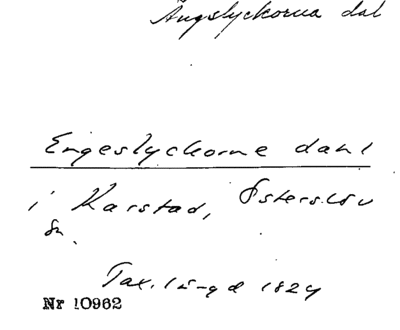 Ängslyckorna dal
Engeslyckorne dahl
i Karstad, Österslöv
sn.
Tax. längd 1824
Nr 10962